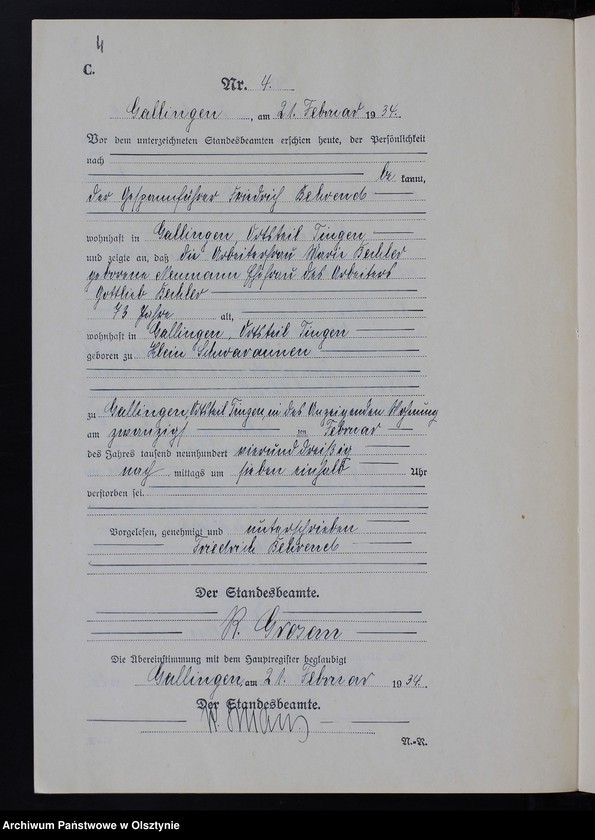 4
C.
Nr. 4.
Gallingen, am 21. Februar 1934.
Vor dem unterzeichneten Standesbeamten erschien heute, der Persönlichkeit
nach
be kannt,
der Gespannführer Friedrich Behrend
wohnhaft in Gallingen, Ortsteil Tingen
und zeigte an, daß die Arbeiterfrau Marie Bechler
geborene Neumann Ehefrau des Arbeiters
Gottlieb Bechler
73 Jahre alt,
wohnhaft in Gallingen, Ortsteil Tingen
geboren zu Klein Schwaraunen
zu Gallingen, Ortsteil Tingen, in des Anzeigenden Wohnung
am zwanzigst ten Februar
des Jahres tausend neunhundert vierunddreißig
nach mittags um sieben einhalb Uhr
verstorben sei.
Vorgelesen, genehmigt und unterschrieben
Friedrich Behrend
Der Standesbeamte.
Die Übereinstimmung mit dem Hauptregister beglaubigt
Gallingen, am 21. Februar 1934.
Der Standesbeamte.
N.-R.
Archiwum Państwowe w Olsztynie